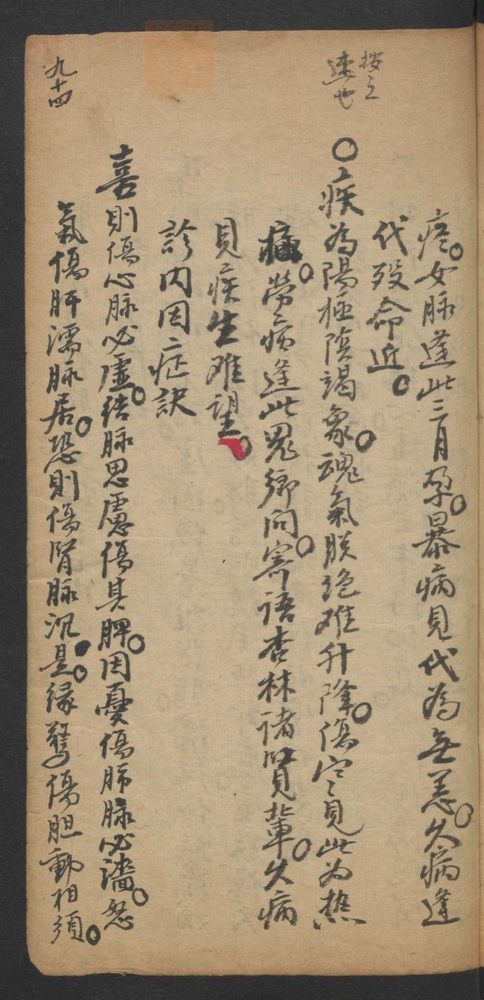 痊。女脉逢此三月孕。暴病見代為無恙。久病逢
代殁命近。
○疾為陽極陰竭象。魂氣脱绝难升降。傷寒見此为热
極。劳病逢此鬼鄉向。寄语杏林诸賢輩。久病
見疾生难望。
診内因症訣
喜則傷心脉必虛。结脉思慮傷其脾。因憂傷肺脉必濇。怒
氣傷肝濡脉居。恐則傷腎脉沉是。缘驚傷胆動相須。
按之
速也
九十四